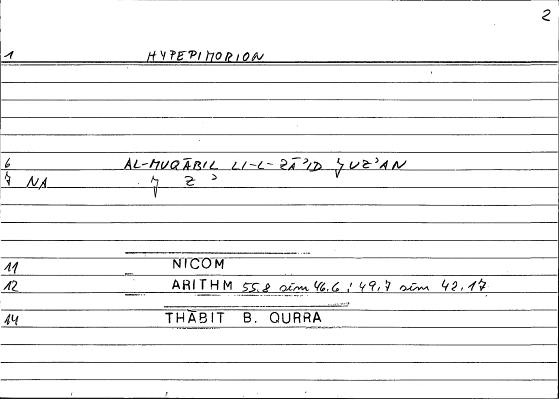 2
1 HYPEPIMORION
6 AL-MUQĀBIL LI-L-ZĀʾID ǮUZʾAN
Ǯ NA Ǯ Zʾ
11 NICOM
12 ARITHM 55.8 sim 46.6; 49,7 sim 42,17
14 THĀBIT B. QURRA